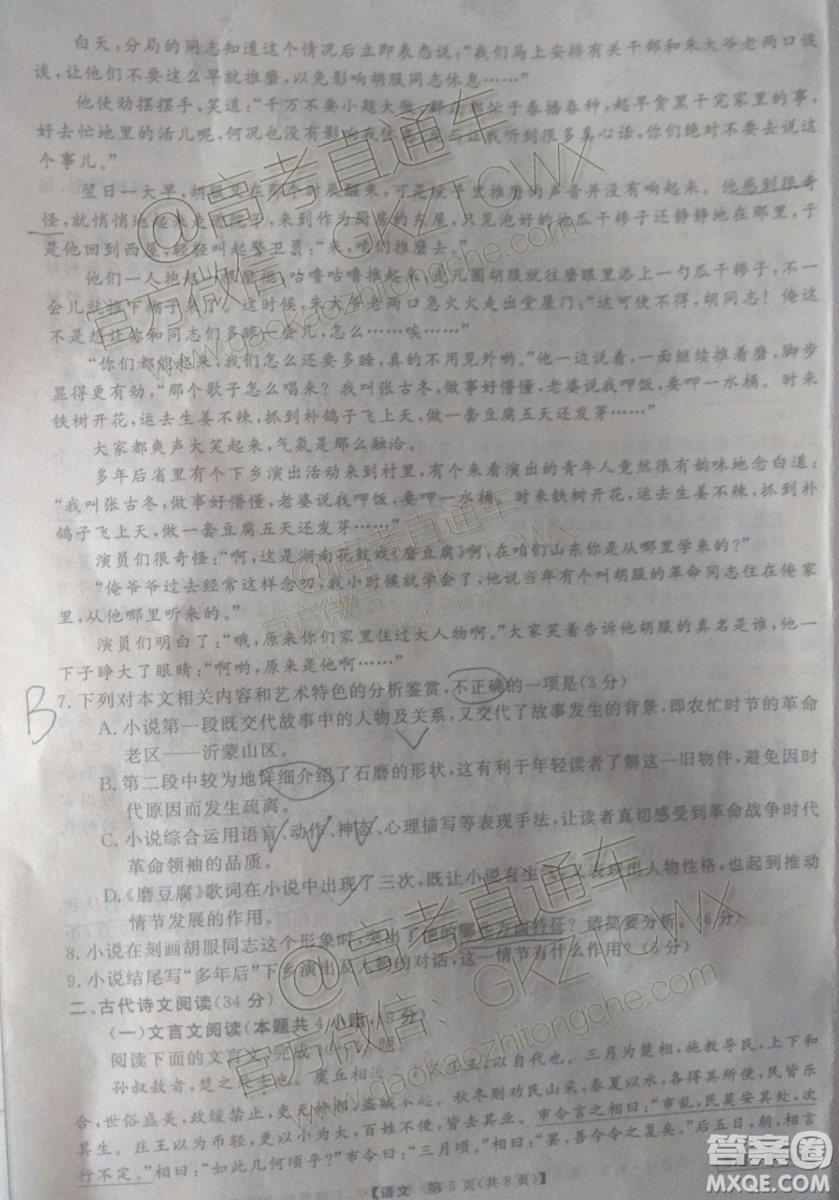 白天，分局的同志知道这个情况后立即表态说：“我们马上安排有关干部和朱大爷老两口谈
谈，让他们不要这么早就推磨，以免影响胡服同志休息……”
他使劲摆摆手，笑道：“千万不要小题大做！群众都忙于春播春种，起早贪黑干完家里的事，
好去忙地里的活儿呢，何况也没有影响我休息，而且这都是真心话，你们绝对不要去说这
个事儿。”
翌日一大早，胡服又在那个时辰醒来，可是院子里推磨的声音并没有响起。他感到很奇
怪，就悄悄地起来走进院子，来到作为厨房的东屋，只见泡好的地瓜干棒子还静静在那里，于
是他回到西屋，轻轻叫起警卫员：“来，咱们推磨去。”
他们一人抱棍，把磨咕噜咕噜推起来，走几圈胡服往磨眼里添上一勺瓜干棒子，不一
会儿就推下糊子来了。这时候，朱大爷老两口急火火走出堂屋门：“这可使不得，胡同志！俺这
不是想让你和同志们多睡一会儿，怎么……唉……”
“你们都能起来，我们怎么还要多睡，真的不用见外哟。”他一边说着，一面继续推着磨，脚步
显得更有劲，“那个歌子怎么唱来？我叫张古冬，做事好懵懂，老婆说我呷饭，要呷一水桶。时来
铁树开花，运去生姜不辣，抓到朴鸽子飞上天，做一套豆腐五天还发芽……”
大家都爽声大笑起来，气氛是那么融洽。
多年后省里有个下乡演出活动来到村里，有个来看演出的青年人竟然很有韵味地念白道：
“我叫张古冬，做事好懵懂，老婆说我呷饭，要呷一水桶。时来铁树开花，运去生姜不辣，抓到朴
鸽子飞上天，做一套豆腐五天还发芽……”
演员们很奇怪：“啊，这是湖南花鼓戏《磨豆腐》啊，在咱们山东你是从哪里学来的？”
“俺爷爷过去经常这样念念，我小时候就学会了，他说是从一个叫胡服的革命同志住在俺家
里，从他那里听来的。”
演员们明白了：“哦，原来你们家里住过大人物啊。”大家笑着告诉他胡服的真名是谁，他一
下子睁大了眼睛：“啊哟，原来是他啊……”
B
7. 下列对本文相关内容和艺术特色的分析鉴赏，不正确的一项是（3 分）
A. 小说第一段既交代故事中的人物及关系，又交代了故事发生的背景，即农忙时节的革命
老区——沂蒙山区。
B. 第二段中较为地详细介绍了石磨的形状，这有利于年轻读者了解这一旧物件，避免因时
代原因而发生疏离。
C. 小说综合运用语言、动作、神态、心理描写等表现手法，让读者感受到革命战争时代
革命领袖的品质。
D.《磨豆腐》歌词在小说中出现了三次，既具有生活情趣，又表现出人物性格，也起到推动
情节发展的作用。
8. 小说在刻画胡服同志这个形象时，突出了他的哪些方面特征？请简要分析。（6 分）
9. 小说结尾写“多年后”下乡演出及人物的对话，这一情节有什么作用？（6 分）
二、古代诗文阅读（34 分）
（一）文言文阅读（本题共 4 小题，19 分）
阅读下面的文言文，完成 10～13 题。
孙叔敖者，楚之处士也。虞丘相进之于楚庄王，以自代也。三月为楚相，施教导民，上下和
合，世俗盛美，政缓禁止，吏无奸邪，盗贼不起。秋冬则劝民山采，春夏以水，各得其所便，民皆乐
其生。庄王以为币轻，更以小为大，百姓不便，皆去其业。市令言之相曰：“市乱，民莫安其处，次
行不定。”相曰：“如此几何顷乎？”市令曰：“三月顷。”相曰：“罢，吾今令之复矣。”后五日，朝，相言
【语文　第 5 页（共 8 页）】
@高考直通车
官方微信：GKZTCWX
www.gaokaozhitongche.com
@高考直通车
官方微信：GKZTCWX
www.gaokaozhitongche.com
答案圈
MXQE.COM